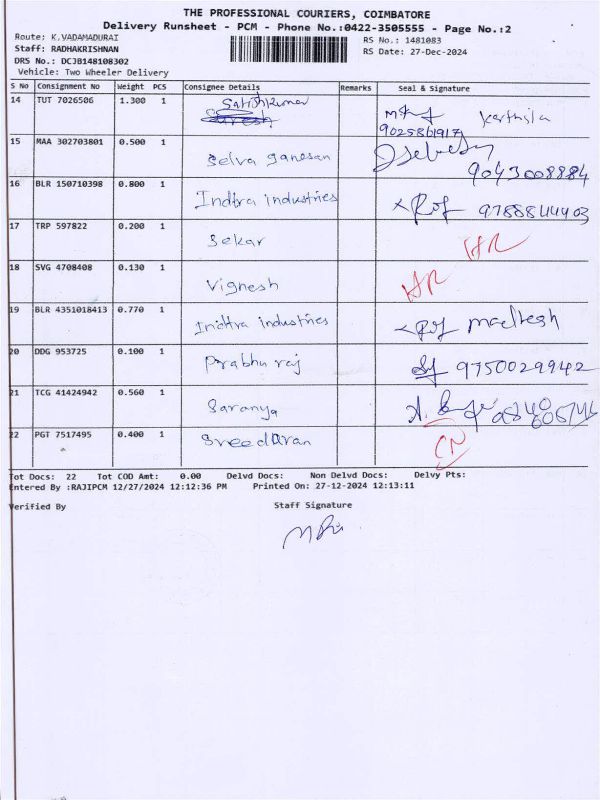 THE PROFESSIONAL COURIERS, COIMBATORE
Delivery Runsheet - PCM - Phone No.:0422-3505555 - Page No.:2
Route: K.VADAMADURAI
RS No.: 1481083
Staff: RADHAKRISHNAN
RS Date: 27-Dec-2024
DRS No.: DCJB148108302
Vehicle: Two Wheeler Delivery
S No Consignment No Weight PCS Consignee Details Remarks Seal & Signature
14 TUT 7026506 1.300 1 Satishkumar Karthik
9025861917
15 MAA 302703801 0.500 1 Selva ganesan
9043008884
16 BLR 150710398 0.800 1 Indhra industries 9788844403
17 TRP 597822 0.200 1 Sekar HR
18 SVG 4708408 0.130 1 Vignesh HR
19 BLR 4351018413 0.770 1 Indhra industries
20 DDG 953725 0.100 1 Prabhu raj 9750029942
21 TCG 41424942 0.560 1 Saranya
22 PGT 7517495 0.400 1 Sreedaran CN
Tot Docs: 22 Tot COD Amt: 0.00 Delvd Docs: Non Delvd Docs: Delvy Pts:
Entered By :RAJIPCM 12/27/2024 12:12:36 PM Printed On: 27-12-2024 12:13:11
Verified By Staff Signature